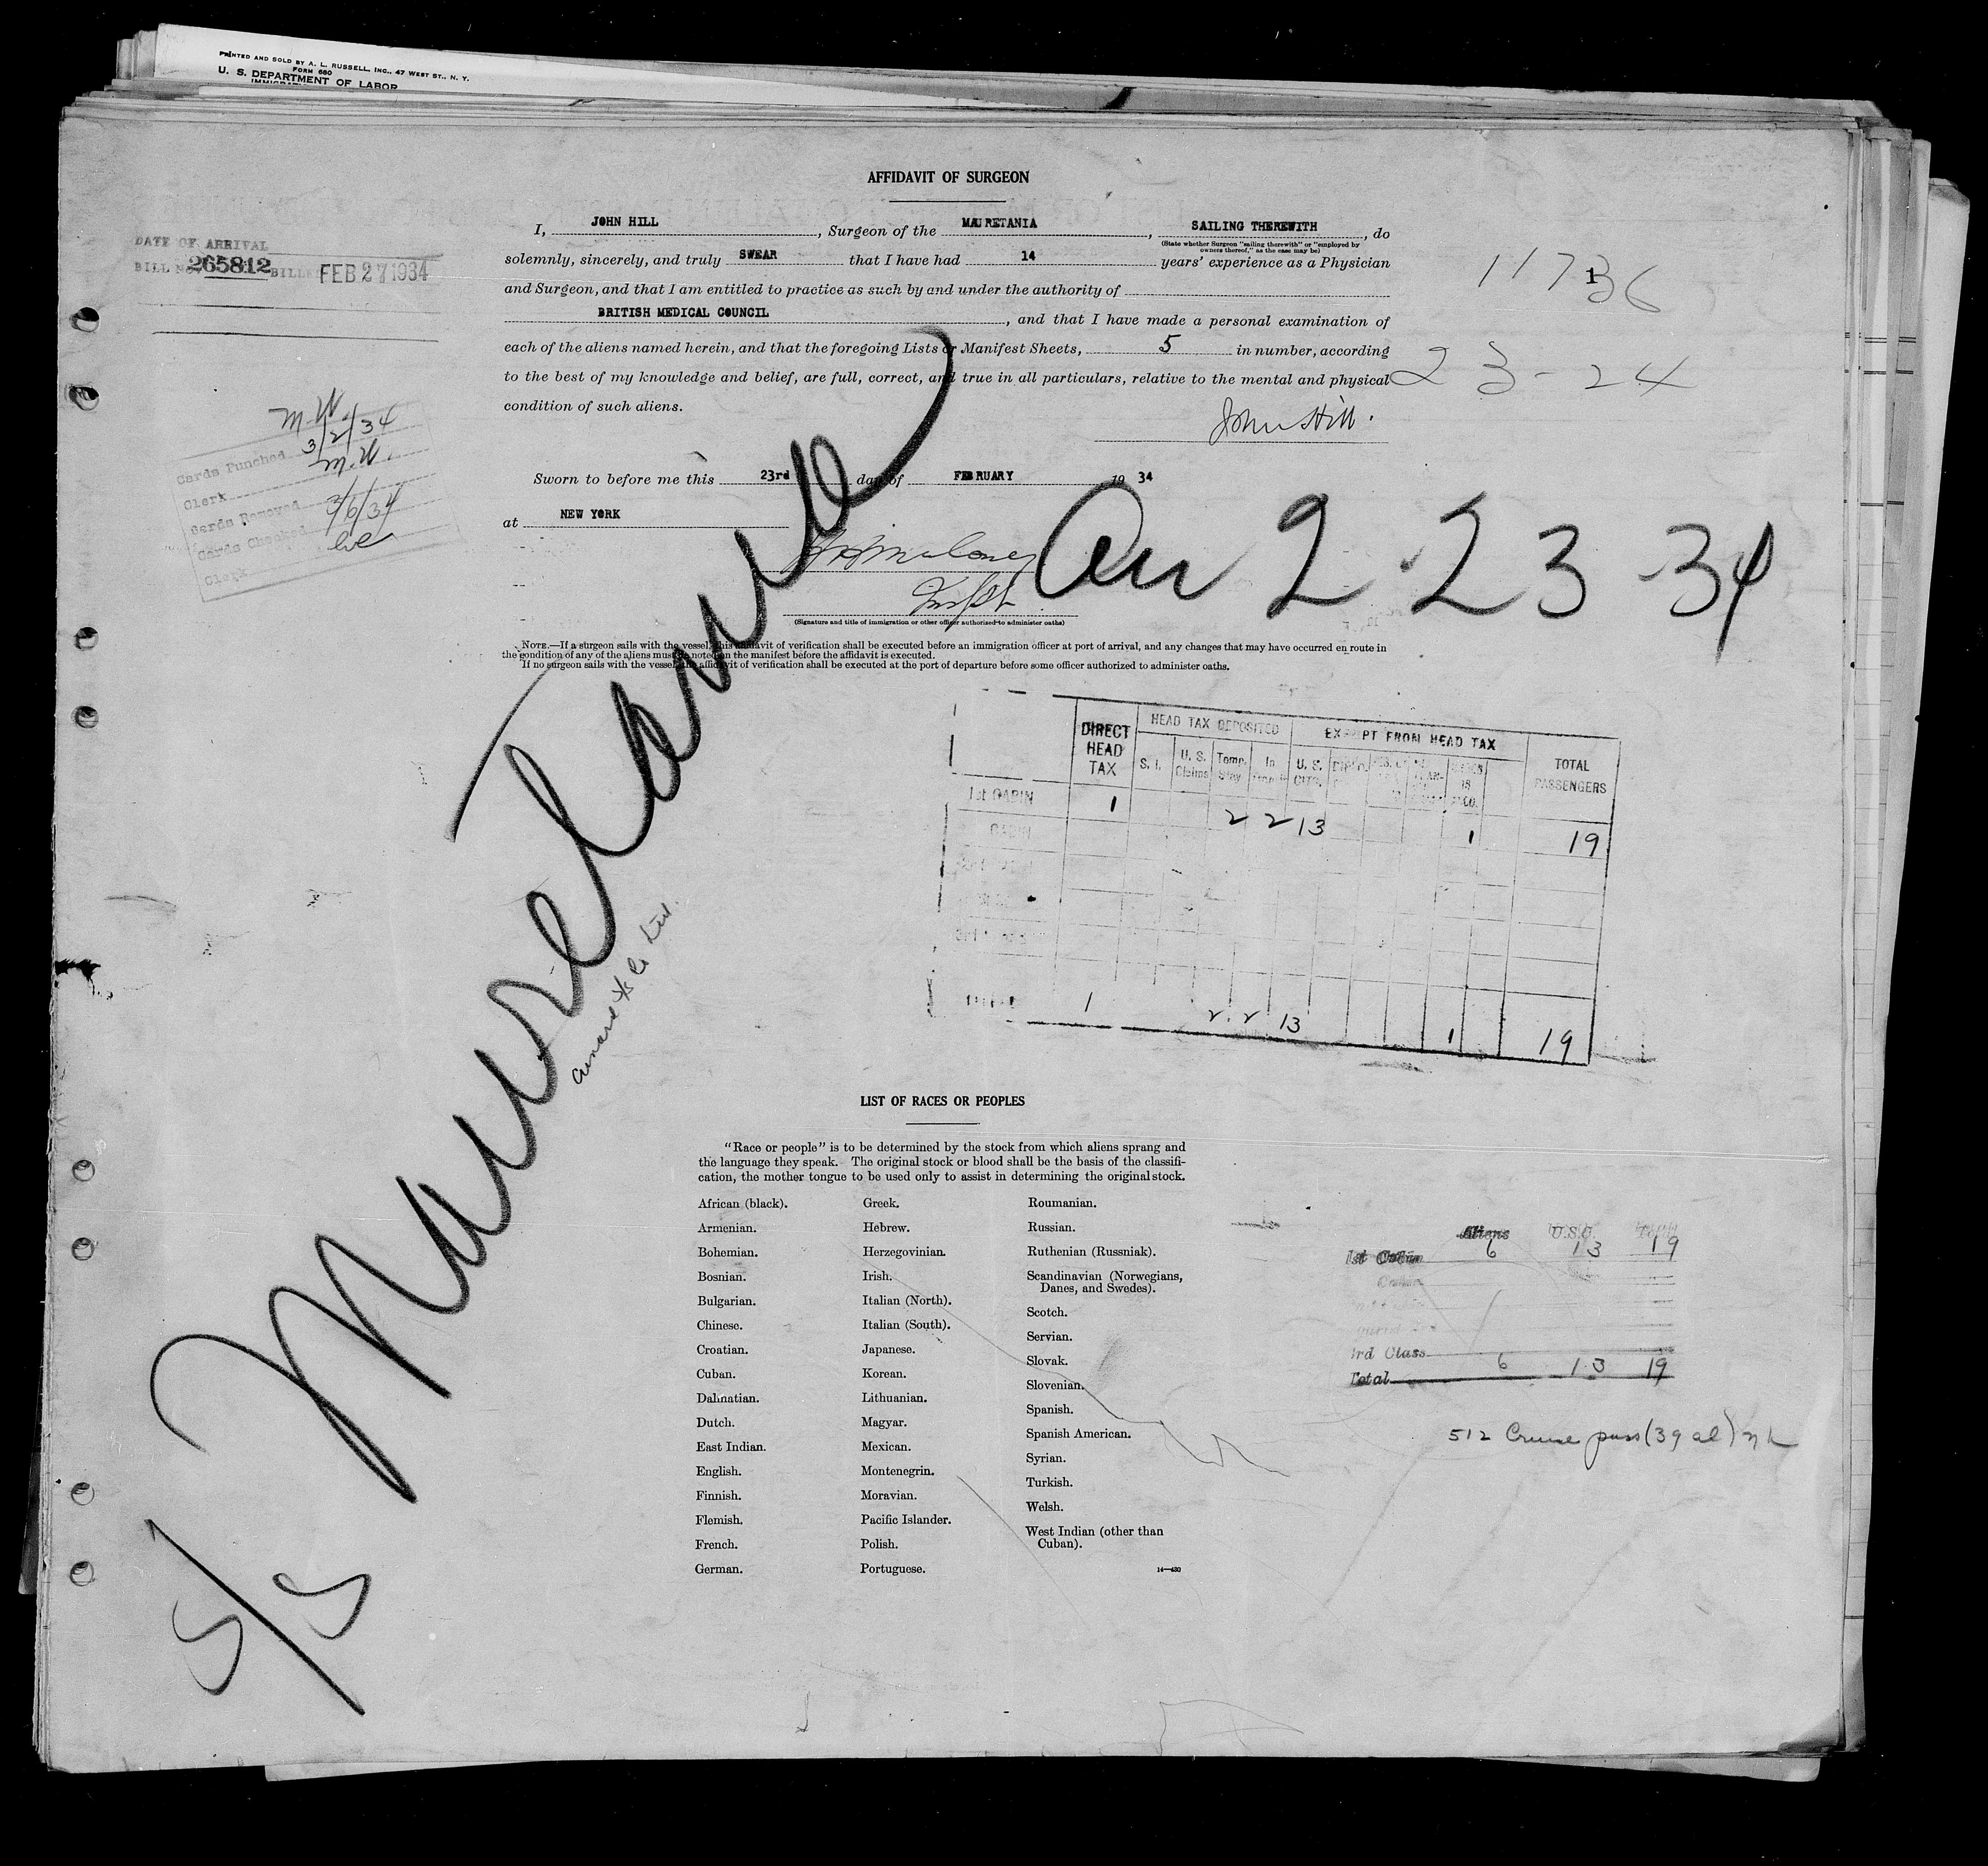 PRINTED AND SOLD BY A. L. RUSSELL, INC., 47 WEST ST., N. Y.
FORM 680
U. S. DEPARTMENT OF LABOR
AFFIDAVIT OF SURGEON
DATE OF ARRIVAL
BILL No. 265812 BILLED FEB 27 1934
I, JOHN HILL, Surgeon of the MAURETANIA, SAILING THEREWITH, do
(State whether Surgeon "sailing therewith" or "employed by
owners thereof," as the case may be)
solemnly, sincerely, and truly SWEAR that I have had 14 years' experience as a Physician
and Surgeon, and that I am entitled to practice as such by and under the authority of
BRITISH MEDICAL COUNCIL, and that I have made a personal examination of
each of the aliens named herein, and that the foregoing Lists or Manifest Sheets, 5 in number, according
to the best of my knowledge and belief, are full, correct, and true in all particulars, relative to the mental and physical
condition of such aliens.
John Hill.
11736
23-24
Sworn to before me this 23rd day of FEBRUARY 19 34
at NEW YORK
(Signature and title of immigration or other officer authorized to administer oaths)
Cards Punched 3/2/34
Clerk M.W.
Cards Removed
Cards Checked 3/6/34
Clerk
Arr 2-23-34
S/S Mauretania
Cunard SS Co Ltd.
NOTE.—If a surgeon sails with the vessel, this affidavit of verification shall be executed before an immigration officer at port of arrival, and any changes that may have occurred en route in
the condition of any of the aliens must be noted on the manifest before the affidavit is executed.
If no surgeon sails with the vessel, the affidavit of verification shall be executed at the port of departure before some officer authorized to administer oaths.
DIRECT HEAD TAX HEAD TAX DEPOSITED EXEMPT FROM HEAD TAX TOTAL PASSENGERS
S. I. U. S. Claims Temp. Stay In U. S. CITS.
1st CABIN 1 2 2 13 1 19
CABIN
1 2 2 13 1 19
LIST OF RACES OR PEOPLES
"Race or people" is to be determined by the stock from which aliens sprang and
the language they speak. The original stock or blood shall be the basis of the classifi-
cation, the mother tongue to be used only to assist in determining the original stock.
African (black).
Armenian.
Bohemian.
Bosnian.
Bulgarian.
Chinese.
Croatian.
Cuban.
Dalmatian.
Dutch.
East Indian.
English.
Finnish.
Flemish.
French.
German.
Greek.
Hebrew.
Herzegovinian.
Irish.
Italian (North).
Italian (South).
Japanese.
Korean.
Lithuanian.
Magyar.
Mexican.
Montenegrin.
Moravian.
Pacific Islander.
Polish.
Portuguese.
Roumanian.
Russian.
Ruthenian (Russniak).
Scandinavian (Norwegians,
Danes, and Swedes).
Scotch.
Servian.
Slovak.
Slovenian.
Spanish.
Spanish American.
Syrian.
Turkish.
Welsh.
West Indian (other than
Cuban).
14—430
Aliens U.S.C. Total
1st Cabin 6 13 19
Cabin
3rd Class
Total 6 13 19
512 Cruise pass (39 al)